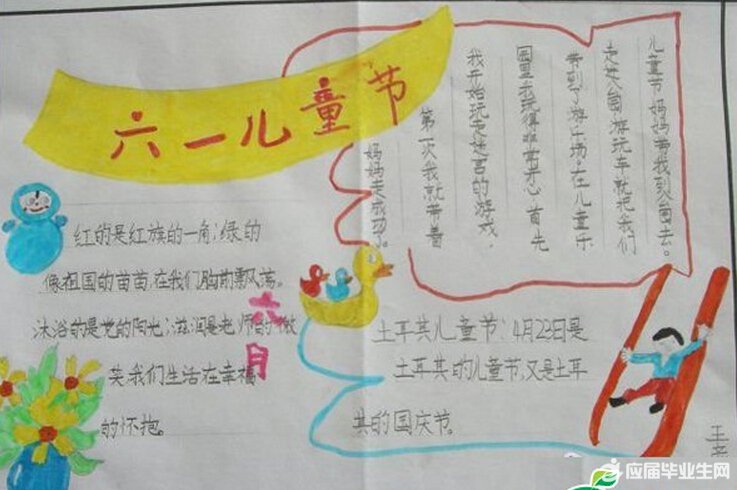 六一儿童节
儿童节妈妈带我到公园去。
走进公园游玩车就把我们
带到了游乐场。在儿童乐
园里我玩得非常开心首先
我开始玩走迷宫的游戏,
第一次我就带着
妈妈走成功了。
红的是红旗的一角;绿的
像祖国的苗苗,在我们胸前飘荡。
沐浴的是党的阳光;滋润是老师的微
笑我们生活在幸福
的怀抱。
六月
土耳其儿童节:4月23日是
土耳其的儿童节,又是土耳
其的国庆节。
王
应届毕业生网